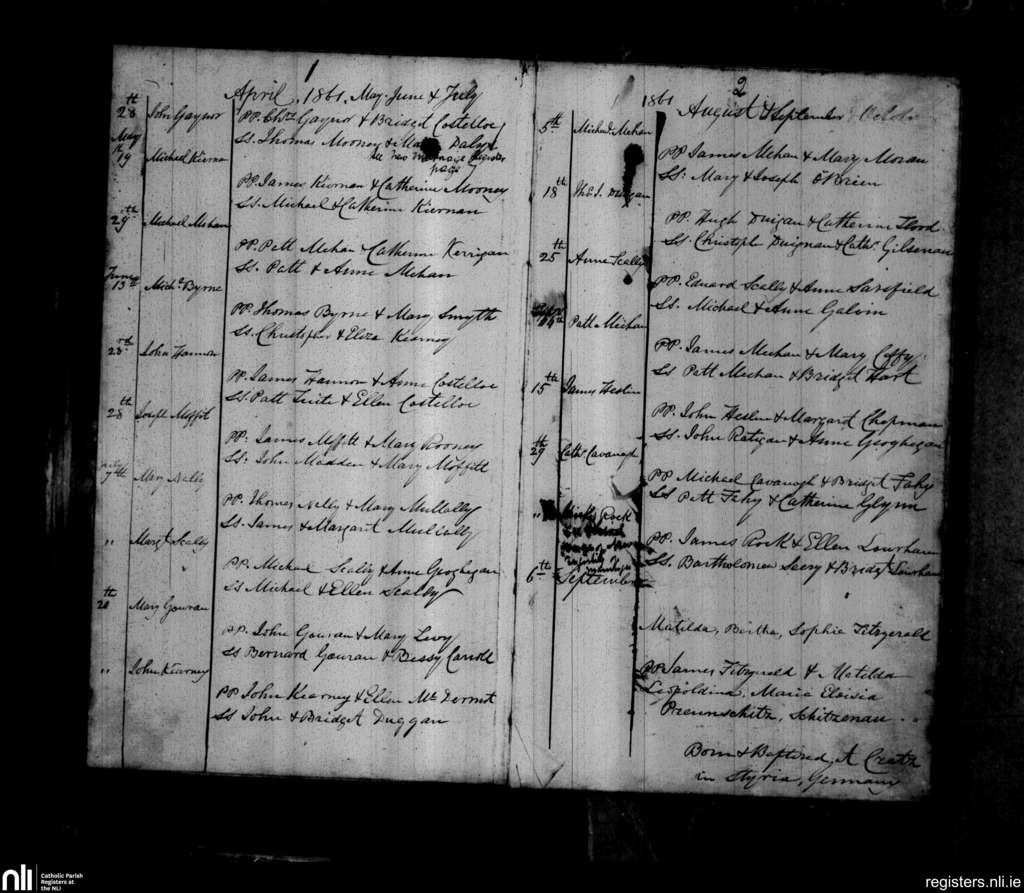 1
April, 1861, May June & July
28th John Gaynor
PP. Chs. Gaynor & Bridget Costelloe
Ss. Thomas Mooney & Daly
See New Marriage Register
page
May 19th Michael Kiernan
PP. James Kiernan & Catherine Mooney
Ss. Michael & Catherine Kiernan
29th Michael Mehan
PP. Patt Mehan & Catherine Kerrigan
Ss. Patt & Anne Mehan
June 13th Michl Byrne
PP. Thomas Byrne & Mary Smyth
Ss. Christopher & Eliza Kearney
23rd John Hannon
PP. James Hannon & Anne Costelloe
Ss. Patt Tuite & Ellen Costelloe
28th Joseph Moffitt
PP. James Moffitt & Mary Rooney
Ss. John Madden & Mary Moffitt
July 7th Mary Nally
PP. Thomas Nally & Mary Mullally
Ss. James & Margaret Mullally
" Margt Scally
PP. Michael Scally & Anne Geoghegan
Ss Michael & Ellen Scally
28th Mary Gouran
PP. John Gouran & Mary Levy
Ss Bernard Gouran & Bessy Carroll
" John Kearney
PP John Kearney & Ellen Mc Dermot
Ss John & Bridget Duggan
2
1861 August & September & Octob
5th Michael Mehan
PP James Mehan & Mary Moran
Ss. Mary & Joseph O'Brien
18th Thos. J. Duigan
PP. Hugh Duigan & Catherine Flood
Ss. Christoph Duignan & Cathe Gilsenan
25th Anne Scally
PP. Edward Scally & Anne Sarsfield
Ss. Michael & Anne Galvin
Septr 14th Patt Meehan
PP. James Meehan & Mary Coffy
Ss Patt Meehan & Bridget Hart
15th James Heslin
PP. John Heslin & Margaret Chapman
Ss. John Ratigan & Anne Geoghegan
29th Cathe Cavanagh
PP Michael Cavanagh & Bridget Fahy
Ss Patt Fahy & Catherine Glynn
" Rock
PP. James Rock & Ellen Lowham
Ss. Bartholomew Seery & Bridgt Lowham
6th September
Matilda, Bertha, Sophia Fitzgerald
PP James Fitzgerald & Matilda
Leopoldina, Maria Eloisia
Preunschitz, Schitzenau
Born & Baptised, At Creatz
in Styria, Germany
nli
Catholic Parish
Registers at
the NLI
registers.nli.ie